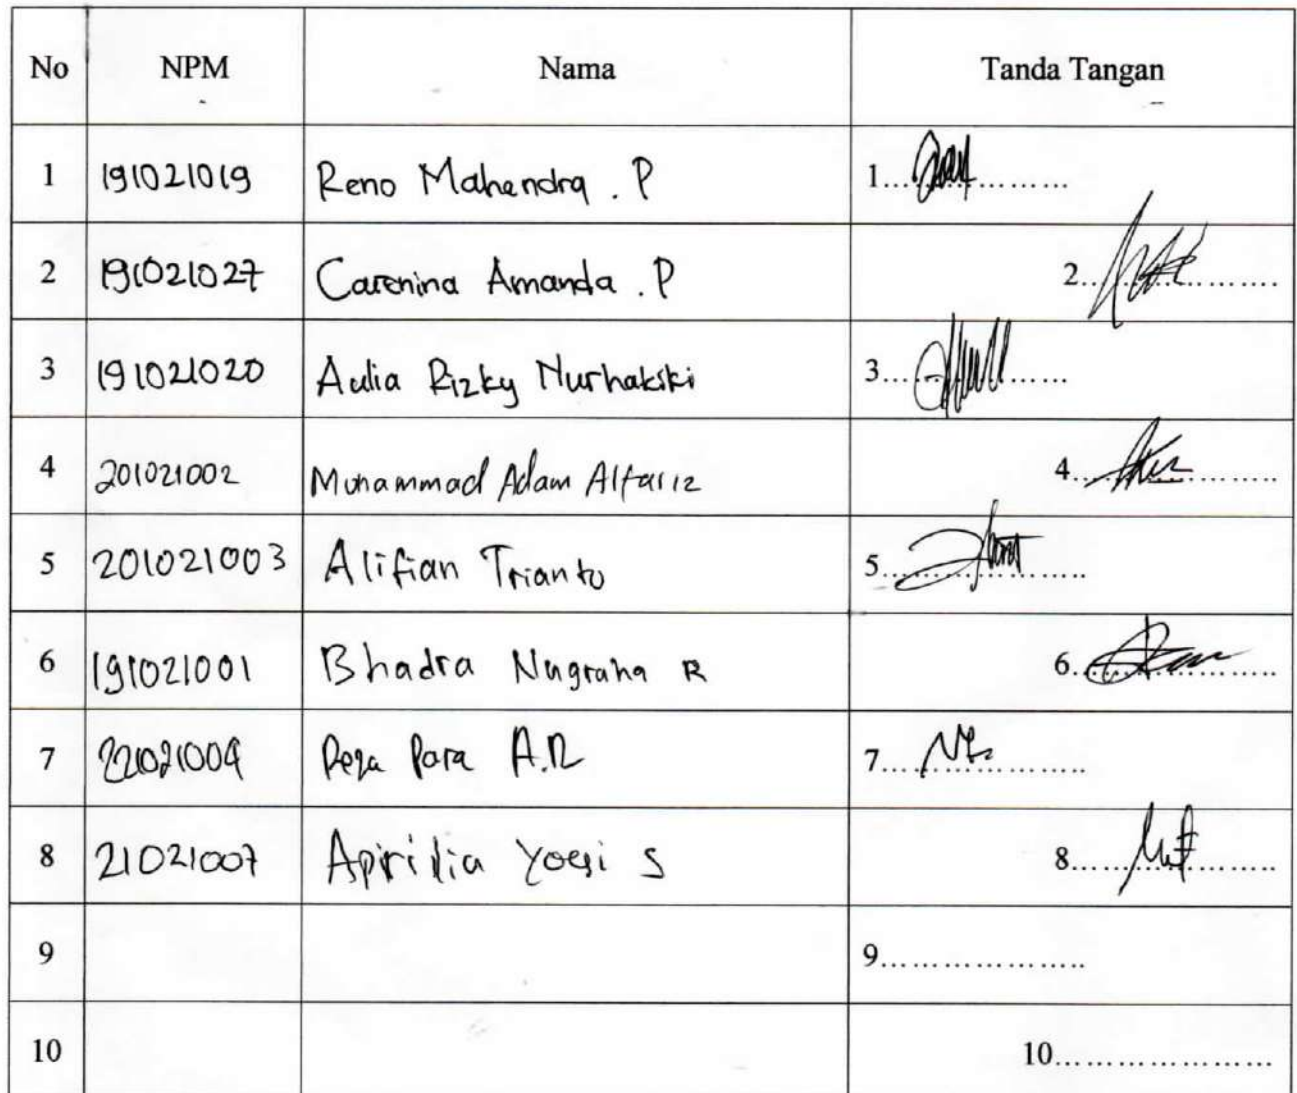 No NPM Nama Tanda Tangan
1 191021019 Reno Mahendra . P 1..................
2 191021027 Carenina Amanda . P 2..................
3 191021020 Aulia Rizky Nurhakiki 3..................
4 201021002 Muhammad Adam Alfariz 4..................
5 201021003 Alifian Trianto 5..................
6 191021001 Bhadra Nugraha R 6..................
7 221021004 Reza Para A.R 7..................
8 21021007 Apirilia Yoesi S 8..................
9 9..................
10 10..................